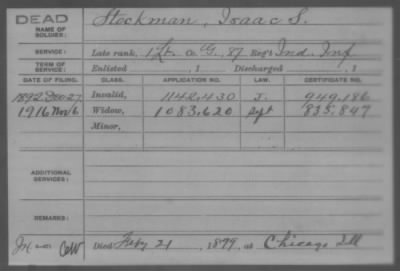 DEAD
NAME OF SOLDIER: Stockman, Isaac S.
SERVICE: Late rank, 1 Lt. Co G, 87 Reg't Ind. Inf
TERM OF SERVICE: Enlisted , 1 Discharged , 1
DATE OF FILING. CLASS. APPLICATION NO. LAW. CERTIFICATE NO.
1892 Dec 27 Invalid, 1142.430 J. 949.186
1916 Nov 6 Widow, 1083.620 Sept 835.847
Minor,
ADDITIONAL SERVICES:
REMARKS:
Died Feby 21, 1899, at Chicago Ill